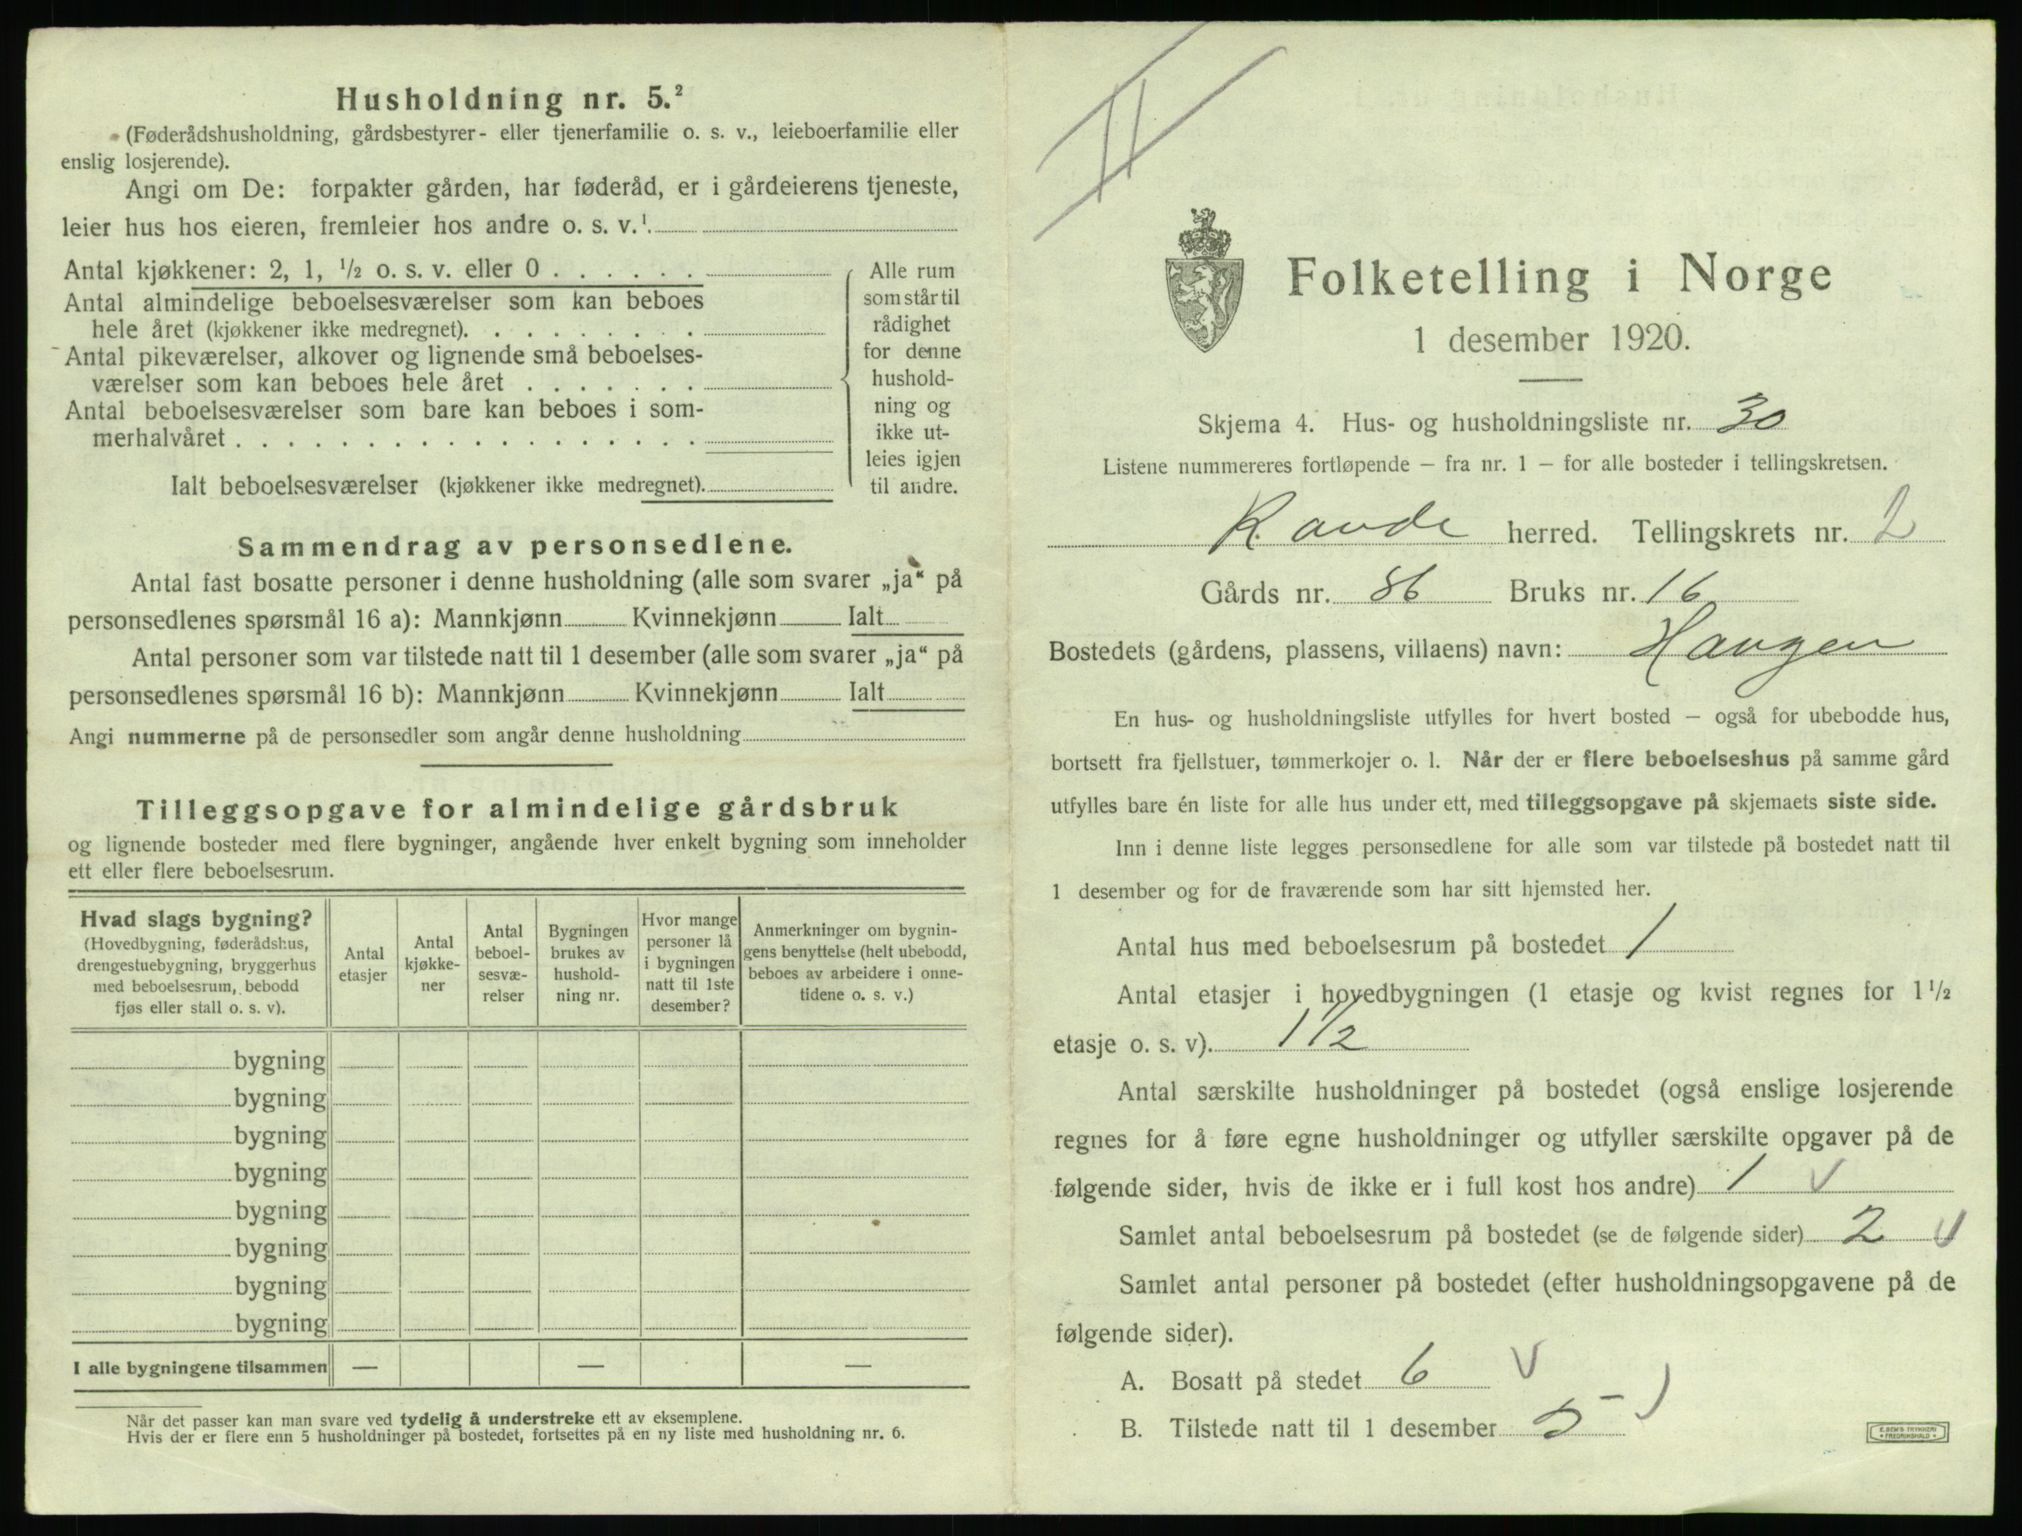 Husholdning nr. 5.²
(Føderådshusholdning, gårdsbestyrer- eller tjenerfamilie o. s. v., leieboerfamilie eller
enslig losjerende).
Angi om De: forpakter gården, har føderåd, er i gårdeierens tjeneste,
leier hus hos eieren, fremleier hos andre o. s. v.¹.
Antal kjøkkener: 2, 1, ½ o. s. v. eller 0 . . . . . .
Antal almindelige beboelsesværelser som kan beboes
hele året (kjøkkener ikke medregnet). . . . . . . . .
Antal pikeværelser, alkover og lignende små beboelses-
værelser som kan beboes hele året . . . . . . .
Antal beboelsesværelser som bare kan beboes i som-
merhalvåret . . . . . . . . . . . . . . . . . .
Ialt beboelsesværelser (kjøkkener ikke medregnet).
Alle rum
som står til
rådighet
for denne
hushold-
ning og
ikke ut-
leies igjen
til andre.
Sammendrag av personsedlene.
Antal fast bosatte personer i denne husholdning (alle som svarer „ja“ på
personsedlenes spørsmål 16 a): Mannkjønn Kvinnekjønn Ialt
Antal personer som var tilstede natt til 1 desember (alle som svarer „ja“ på
personsedlenes spørsmål 16 b): Mannkjønn Kvinnekjønn Ialt
Angi nummerne på de personsedler som angår denne husholdning
Tilleggsopgave for almindelige gårdsbruk
og lignende bosteder med flere bygninger, angående hver enkelt bygning som inneholder
ett eller flere beboelsesrum.
Hvad slags bygning?
(Hovedbygning, føderådshus,
drengestuebygning, bryggerhus
med beboelsesrum, bebodd
fjøs eller stall o. s. v).
Antal
etasjer
Antal
kjøkke-
ner
Antal
beboel-
sesvæ-
relser
Bygningen
brukes av
hushold-
ning nr.
Hvor mange
personer lå
i bygningen
natt til 1ste
desember?
Anmerkninger om bygnin-
gens benyttelse (helt ubebodd,
beboes av arbeidere i onne-
tidene o. s. v.)
bygning
bygning
bygning
bygning
bygning
bygning
bygning
bygning
I alle bygningene tilsammen — — —
Når det passer kan man svare ved tydelig å understreke ett av eksemplene.
Hvis der er flere enn 5 husholdninger på bostedet, fortsettes på en ny liste med husholdning nr. 6.
II
Folketelling i Norge
1 desember 1920.
Skjema 4. Hus- og husholdningsliste nr. 30
Listene nummereres fortløpende – fra nr. 1 – for alle bosteder i tellingskretsen.
Raade herred. Tellingskrets nr. 2
Gårds nr. 86 Bruks nr. 16
Bostedets (gårdens, plassens, villaens) navn: Haugen
En hus- og husholdningsliste utfylles for hvert bosted – også for ubebodde hus,
bortsett fra fjellstuer, tømmerkojer o. l. Når der er flere beboelseshus på samme gård
utfylles bare én liste for alle hus under ett, med tilleggsopgave på skjemaets siste side.
Inn i denne liste legges personsedlene for alle som var tilstede på bostedet natt til
1 desember og for de fraværende som har sitt hjemsted her.
Antal hus med beboelsesrum på bostedet 1
Antal etasjer i hovedbygningen (1 etasje og kvist regnes for 1½
etasje o. s. v). 1½
Antal særskilte husholdninger på bostedet (også enslige losjerende
regnes for å føre egne husholdninger og utfyller særskilte opgaver på de
følgende sider, hvis de ikke er i full kost hos andre) 1 v
Samlet antal beboelsesrum på bostedet (se de følgende sider) 2 v
Samlet antal personer på bostedet (efter husholdningsopgavene på de
følgende sider).
A. Bosatt på stedet 6 v
B. Tilstede natt til 1 desember 5
E. SEM'S TRYKKERI
FREDRIKSHALD